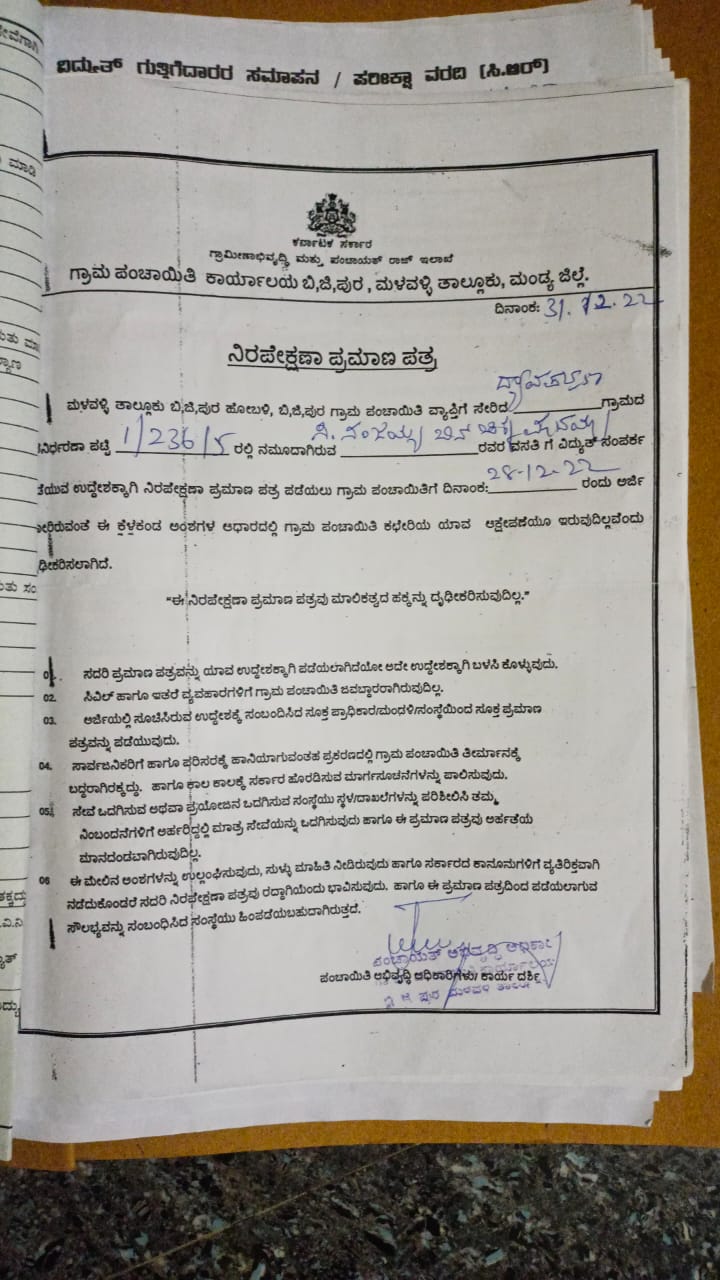 ವಿದ್ಯುತ್ ಗುತ್ತಿಗೆದಾರರ ಸಮಾಪನ / ಪರೀಕ್ಷಾ ವರದಿ (ಸಿ.ಆರ್)
ಕರ್ನಾಟಕ ಸರ್ಕಾರ
ಗ್ರಾಮೀಣಾಭಿವೃದ್ಧಿ ಮತ್ತು ಪಂಚಾಯತ್ ರಾಜ್ ಇಲಾಖೆ
ಗ್ರಾಮ ಪಂಚಾಯಿತಿ ಕಾರ್ಯಾಲಯ ಬಿ,ಜಿ,ಪುರ , ಮಳವಳ್ಳಿ ತಾಲ್ಲೂಕು, ಮಂಡ್ಯ ಜಿಲ್ಲೆ.
ದಿನಾಂಕ: 31.12.22
ನಿರಪೇಕ್ಷಣಾ ಪ್ರಮಾಣ ಪತ್ರ
ಮಳವಳ್ಳಿ ತಾಲ್ಲೂಕು ಬಿ,ಜಿ,ಪುರ ಹೋಬಳಿ, ಬಿ,ಜಿ,ಪುರ ಗ್ರಾಮ ಪಂಚಾಯಿತಿ ವ್ಯಾಪ್ತಿಗೆ ಸೇರಿದ ಗ್ರಾಮದ
ನಿರ್ಧರಣಾ ಪಟ್ಟಿ 1/236/5 ರಲ್ಲಿ ನಮೂದಾಗಿರುವ ರವರ ವಸತಿ ಗೆ ವಿದ್ಯುತ್ ಸಂಪರ್ಕ
ಉದ್ದೇಶಕ್ಕಾಗಿ ನಿರಪೇಕ್ಷಣಾ ಪ್ರಮಾಣ ಪತ್ರ ಪಡೆಯಲು ಗ್ರಾಮ ಪಂಚಾಯಿತಿಗೆ ದಿನಾಂಕ: 28-12-22 ರಂದು ಅರ್ಜಿ
ಈ ಕೆಳಕಂಡ ಅಂಶಗಳ ಆಧಾರದಲ್ಲಿ ಗ್ರಾಮ ಪಂಚಾಯಿತಿ ಕಛೇರಿಯ ಯಾವ ಆಕ್ಷೇಪಣೆಯೂ ಇರುವುದಿಲ್ಲವೆಂದು
"ಈ ನಿರಪೇಕ್ಷಣಾ ಪ್ರಮಾಣ ಪತ್ರವು ಮಾಲಿಕತ್ವದ ಹಕ್ಕನ್ನು ದೃಢೀಕರಿಸುವುದಿಲ್ಲ."
01. ಸದರಿ ಪ್ರಮಾಣ ಪತ್ರವನ್ನು ಯಾವ ಉದ್ದೇಶಕ್ಕಾಗಿ ಪಡೆಯಲಾಗಿದೆಯೋ ಅದೇ ಉದ್ದೇಶಕ್ಕಾಗಿ ಬಳಸಿ ಕೊಳ್ಳುವುದು.
02. ಸಿವಿಲ್ ಹಾಗೂ ಇತರೆ ವ್ಯವಹಾರಗಳಿಗೆ ಗ್ರಾಮ ಪಂಚಾಯಿತಿ ಜವಬ್ದಾರರಾಗಿರುವುದಿಲ್ಲ.
03. ಅರ್ಜಿಯಲ್ಲಿ ಸೂಚಿಸಿರುವ ಉದ್ದೇಶಕ್ಕೆ ಸಂಬಂದಿಸಿದ ಸೂಕ್ತ ಪ್ರಾಧಿಕಾರ/ಮಂಡಳಿ/ಸಂಸ್ಥೆಯಿಂದ ಸೂಕ್ತ ಪ್ರಮಾಣ
ಪತ್ರವನ್ನು ಪಡೆಯುವುದು.
04. ಸಾರ್ವಜನಿಕರಿಗೆ ಹಾಗೂ ಪರಿಸರಕ್ಕೆ ಹಾನಿಯಾಗುವಂತಹ ಪ್ರಕರಣದಲ್ಲಿ ಗ್ರಾಮ ಪಂಚಾಯಿತಿ ತೀರ್ಮಾನಕ್ಕೆ
ಬದ್ದರಾಗಿರತಕ್ಕದ್ದು. ಹಾಗೂ ಕಾಲ ಕಾಲಕ್ಕೆ ಸರ್ಕಾರ ಹೊರಡಿಸುವ ಮಾರ್ಗಸೂಚನೆಗಳನ್ನು ಪಾಲಿಸುವುದು.
05. ಸೇವೆ ಒದಗಿಸುವ ಅಥವಾ ಪ್ರಯೋಜನ ಒದಗಿಸುವ ಸಂಸ್ಥೆಯು ಸ್ಥಳ/ದಾಖಲೆಗಳನ್ನು ಪರಿಶೀಲಿಸಿ ತಮ್ಮ
ನಿಂಬಂದನೆಗಳಿಗೆ ಅರ್ಹರಿದ್ದಲ್ಲಿ ಮಾತ್ರ ಸೇವೆಯನ್ನು ಒದಗಿಸುವುದು ಹಾಗೂ ಈ ಪ್ರಮಾಣ ಪತ್ರವು ಅರ್ಹತೆಯ
ಮಾನದಂಡವಾಗಿರುವುದಿಲ್ಲ.
06 ಈ ಮೇಲಿನ ಅಂಶಗಳನ್ನು ಉಲ್ಲಂಘಿಸುವುದು, ಸುಳ್ಳು ಮಾಹಿತಿ ನೀಡಿರುವುದು ಹಾಗೂ ಸರ್ಕಾರದ ಕಾನೂನುಗಳಿಗೆ ವ್ಯತಿರಿಕ್ತವಾಗಿ
ನಡೆದುಕೊಂಡರೆ ಸದರಿ ನಿರಪೇಕ್ಷಣಾ ಪತ್ರವು ರದ್ದಾಗಿಯೆಂದು ಭಾವಿಸುವುದು. ಹಾಗೂ ಈ ಪ್ರಮಾಣ ಪತ್ರದಿಂದ ಪಡೆಯಲಾಗುವ
ಸೌಲಭ್ಯವನ್ನು ಸಂಬಂಧಿಸಿದ ಸಂಸ್ಥೆಯು ಹಿಂಪಡೆಯಬಹುದಾಗಿರುತ್ತದೆ.
ಪಂಚಾಯತ್ ಅಭಿವೃದ್ಧಿ ಅಧಿಕಾರಿ
ಪಂಚಾಯಿತಿ ಅಭಿವೃದ್ಧಿ ಅಧಿಕಾರಿಗಳು/ ಕಾರ್ಯದರ್ಶಿ